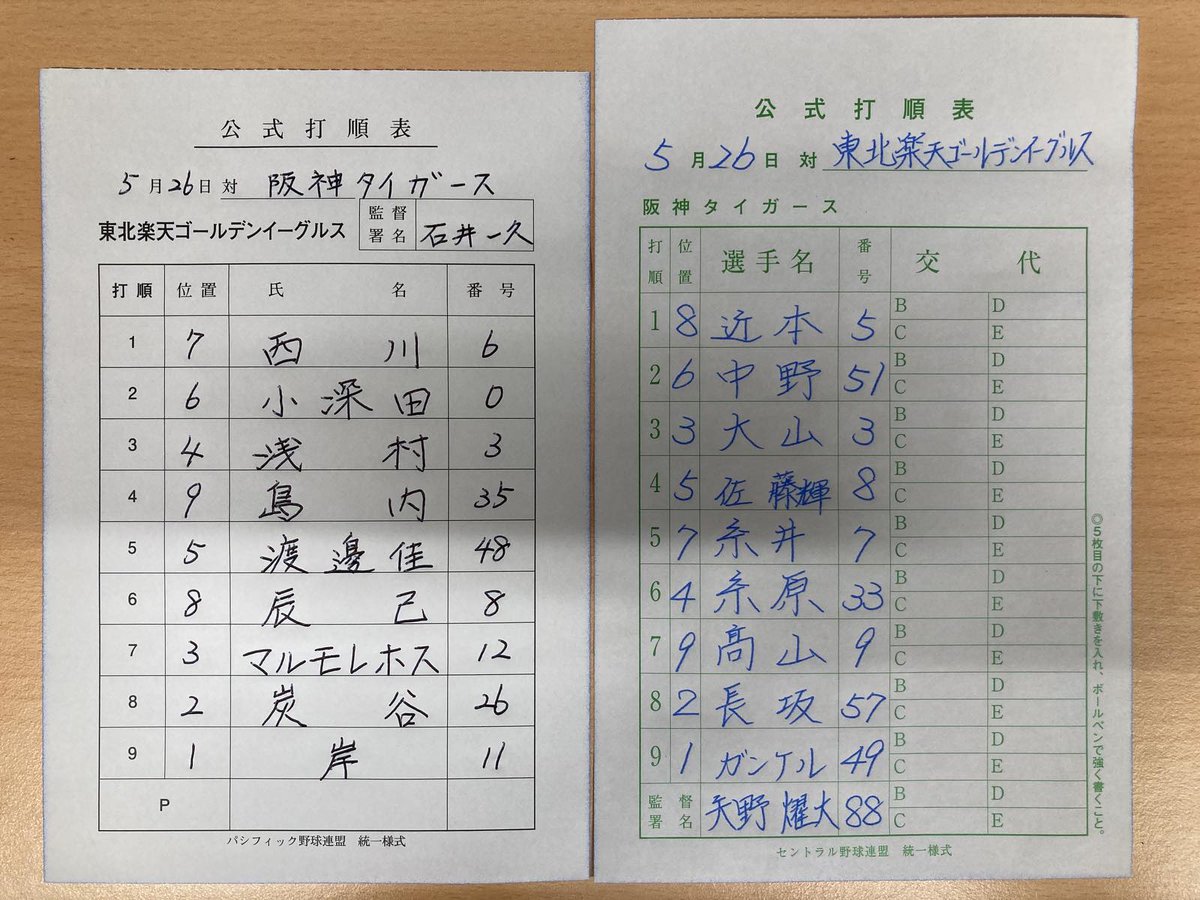 公式打順表
5月26日 対 阪神タイガース
東北楽天ゴールデンイーグルス 監督署名 石井一久
打順 位置 氏名 番号
1 7 西川 6
2 6 小深田 0
3 4 浅村 3
4 9 島内 35
5 5 渡邊佳 48
6 8 辰己 8
7 3 マルモレホス 12
8 2 炭谷 26
9 1 岸 11
P
パシフィック野球連盟 統一様式
公式打順表
5月26日 対 東北楽天ゴールデンイーグルス
阪神タイガース
打順 位置 選手名 番号 交代
1 8 近本 5 B D
C E
2 6 中野 51 B D
C E
3 3 大山 3 B D
C E
4 5 佐藤輝 8 B D
C E
5 7 糸井 7 B D
C E
6 4 糸原 33 B D
C E
7 9 髙山 9 B D
C E
8 2 長坂 57 B D
C E
9 1 ガンケル 49 B D
C E
監督署名 矢野 燿大 88 B D
C E
セントラル野球連盟 統一様式
◎5枚目の下に下敷きを入れ、ボールペンで強く書くこと。